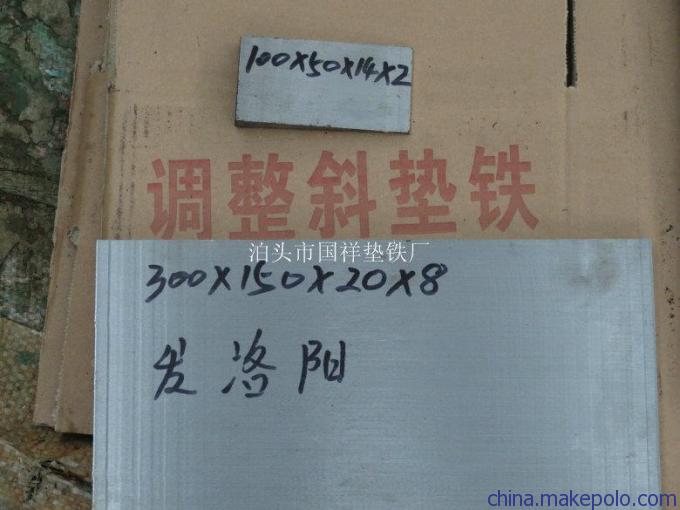 100X50X14X2
调整斜垫铁
泊头市国祥垫铁厂
300X150X20X8
发洛阳
china.makepolo.com